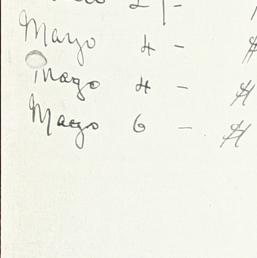 21-
Mayo 4 - $
Mayo 4 - $
Mayo 6 - $